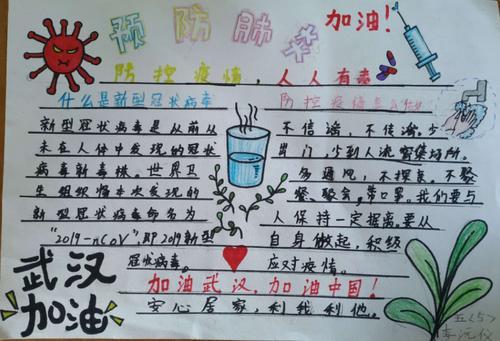 预防肺炎
加油!
防控疫情，人人有责
什么是新型冠状病毒
防控疫情怎么做
新型冠状病毒是从前从
未在人体中发现的冠状
病毒新毒株。世界卫
生组织将本次发现的
新型冠状病毒命名为
“2019-nCoV”,即2019新型
冠状病毒。
不信谣，不传谣。少
出门，少到人流密集场所。
多通风，不握手，不聚
餐、聚会，带口罩。我们要与
人保持一定据离。要从
自身做起，积极
应对疫情。
加油武汉，加油中国！
安心居家，利我利他。
武汉
加油
五(5)